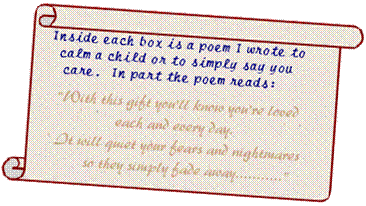 Inside each box is a poem I wrote to
calm a child or to simply say you
care. In part the poem reads:
"With this gift you'll know you're loved
each and every day.
It will quiet your fears and nightmares
so they simply fade away..........."